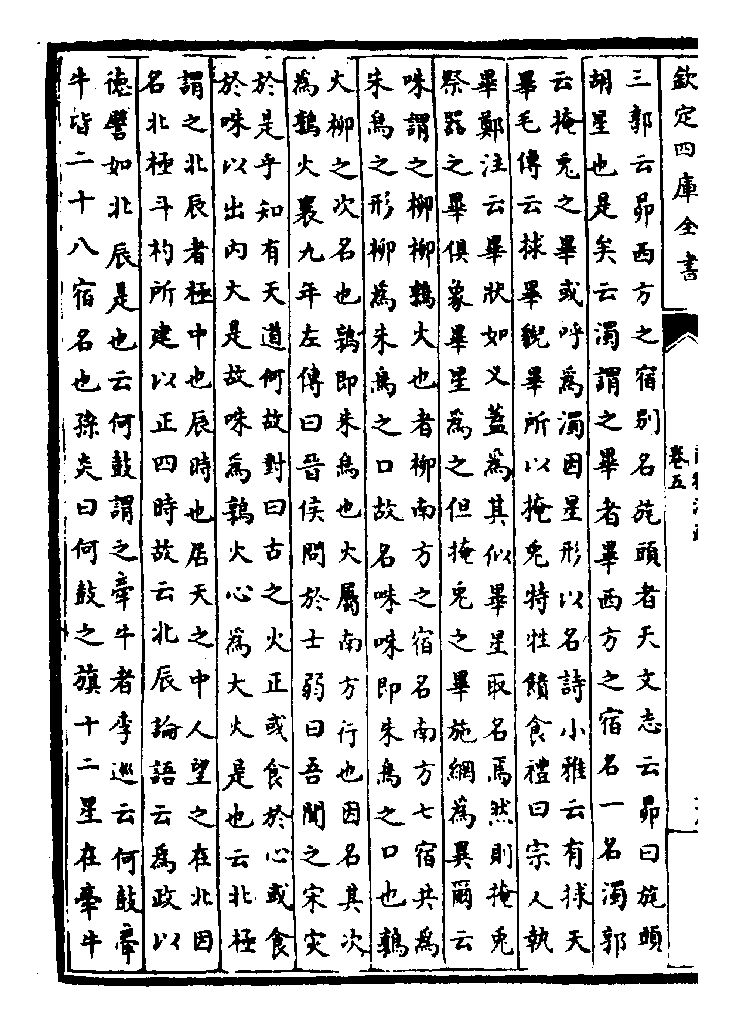 欽定四庫全書
卷五
三郭云昴西方之宿别名旄頭者天文志云昴曰旄頭
胡星也是矣云濁謂之畢者畢西方之宿名一名濁郭
云掩兎之畢或呼為濁因星形以名詩小雅云有捄天
畢毛傳云捄畢貎畢所以掩兎特牲饋食禮曰宗人執
畢鄭注云畢狀如乂蓋為其似畢星取名焉然則掩兎
祭器之畢俱象畢星為之但掩兎之畢施網為異爾云
咮謂之柳柳鶉火也者柳南方之宿名南方七宿共為
朱鳥之形柳為朱鳥之口故名咮咮即朱鳥之口也鶉
火柳之次名也鶉即朱鳥也火屬南方行也因名其次
為鶉火襄九年左傳曰晉侯問於士弱曰吾聞之宋災
於是乎知有天道何故對曰古之火正或食於心或食
於咮以出内火是故咮為鶉火心為大火是也云北極
謂之北辰者極中也辰時也居天之中人望之在北因
名北極斗杓所建以正四時故云北辰論語云為政以
德譬如北辰是也云何鼓謂之牽牛者李巡云何鼓牽
牛皆二十八宿名也孫炎曰何鼓之旗十二星在牽牛